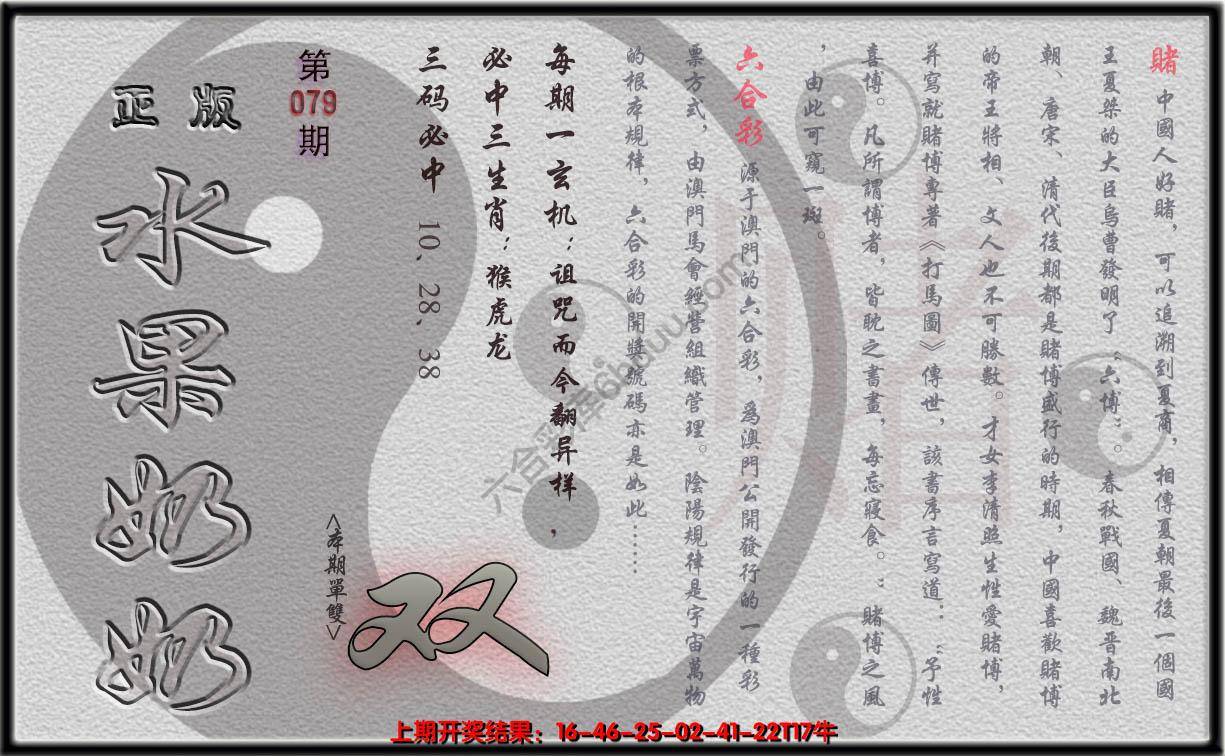 賭 中國人好賭，可以追溯到夏商，相傳夏朝最後一個國
王夏桀的大臣烏曹發明了“六博”。春秋戰國、魏晋南北
朝、唐宋、清代後期都是賭博盛行的時期，中國喜歡賭博
的帝王將相、文人也不可勝數。才女李清照生性愛賭博，
并寫就賭博專著《打馬圖》傳世，該書序言寫道：“予性
喜博。凡所謂博者，皆耽之書畫，每忘寢食。”賭博之風
，由此可窺一斑。
六合彩 源于澳門的六合彩，爲澳門公開發行的一種彩
票方式，由澳門馬會經營組織管理。陰陽規律是宇宙萬物
的根本規律，六合彩的開獎號碼亦是如此……
每期一玄机：诅咒而今翻异样，
必中三生肖：猴虎龙
三码必中 10、28、38
第
079
期
<本期單雙>
双
正版
水果奶奶
赌
上期开奖结果：16-46-25-02-41-22T17牛